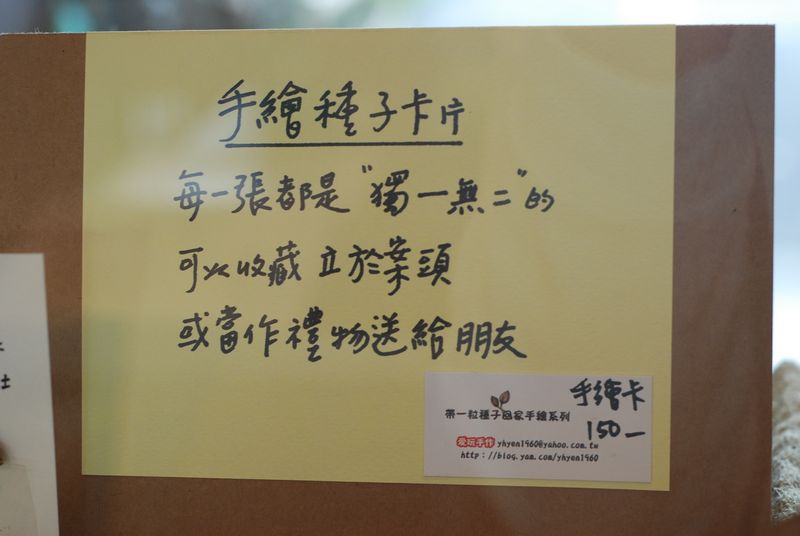 手繪種子卡片
每一張都是"獨一無二"的
可以收藏立於案頭
或當作禮物送給朋友
手繪卡
150-
帶一粒種子回家手繪系列
愛玩手作 yhyen1960@yahoo.com.tw
http://blog.yam.com/yhyen1960